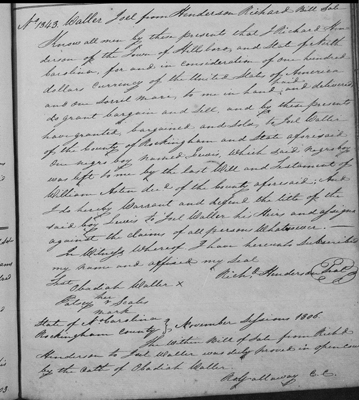 No 1343 Waller Joel from Henderson Richard Bill Sale
Know all men by these present that I Richard Hen-
derson of the Town of Hillsboro, and State of North
Carolina, for and in consideration of one hundred
dollars currency of the United States of America
and one Sorrel mare, to me in hand, and delivered
do grant bargain and Sell, and by these presents
have granted, bargained and sold, to Joel Waller
of the County of Rockingham and State aforesaid
One negro boy named Lewis, which said Negro boy
was left to me by the last Will and Testament of
William decd of the County aforesaid. And
I do hereby Warrant and defend the title of the
said boy Lewis to Joel Waller his Heirs and assigns
against the claims of all persons Whatsoever. —
In Witness Whereof I have hereunto Subscribed
my name and affixed my Seal
Test Richd Henderson Seal
Obadiah Waller x
her
Scales
mark
State of No Carolina
Rockingham County } November Sessions 1806
The Within Bill of Sale from Richd
Henderson to Joel Waller was duly proved in open court
by the oath of Obadiah Waller
Ro Gallaway C.C.